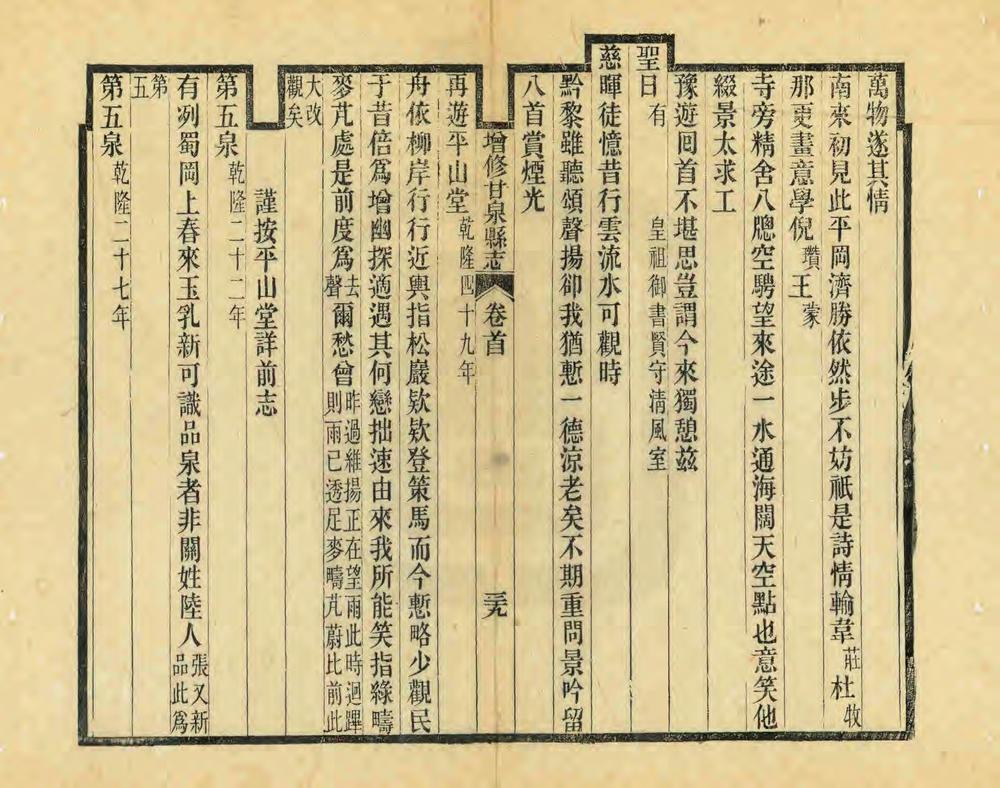 萬物遂其情
南來初見此平岡濟勝依然步不妨祇是詩情輸韋莊杜牧
那更畫意學倪瓚王蒙
寺旁精舍八牕空騁望來途一水通海闊天空點也意笑他
綴景太求工
豫遊回首不堪思豈謂今來獨憩茲
聖日有皇祖御書賢守清風室
慈暉徒憶昔行雲流水可觀時
黔黎雖聽頌聲揚卻我猶慙一德涼老矣不期重問景吟留
八首賞煙光
增修甘泉縣志 卷首 三十九
再遊平山堂乾隆四十九年
舟依柳岸行行近輿指松巖欵欵登策馬而今慙略少觀民
于昔倍爲增幽探適遇其何戀拙速由來我所能笑指綠疇
麥芃處是前度爲去聲爾愁曾昨過維揚正在望雨此時迴蹕則雨已透足麥疇芃蔚比前此
大改觀矣
謹按平山堂詳前志
第五泉乾隆二十二年
有冽蜀岡上春來玉乳新可識品泉者非關姓陸人張又新品此爲
第五
第五泉乾隆二十七年